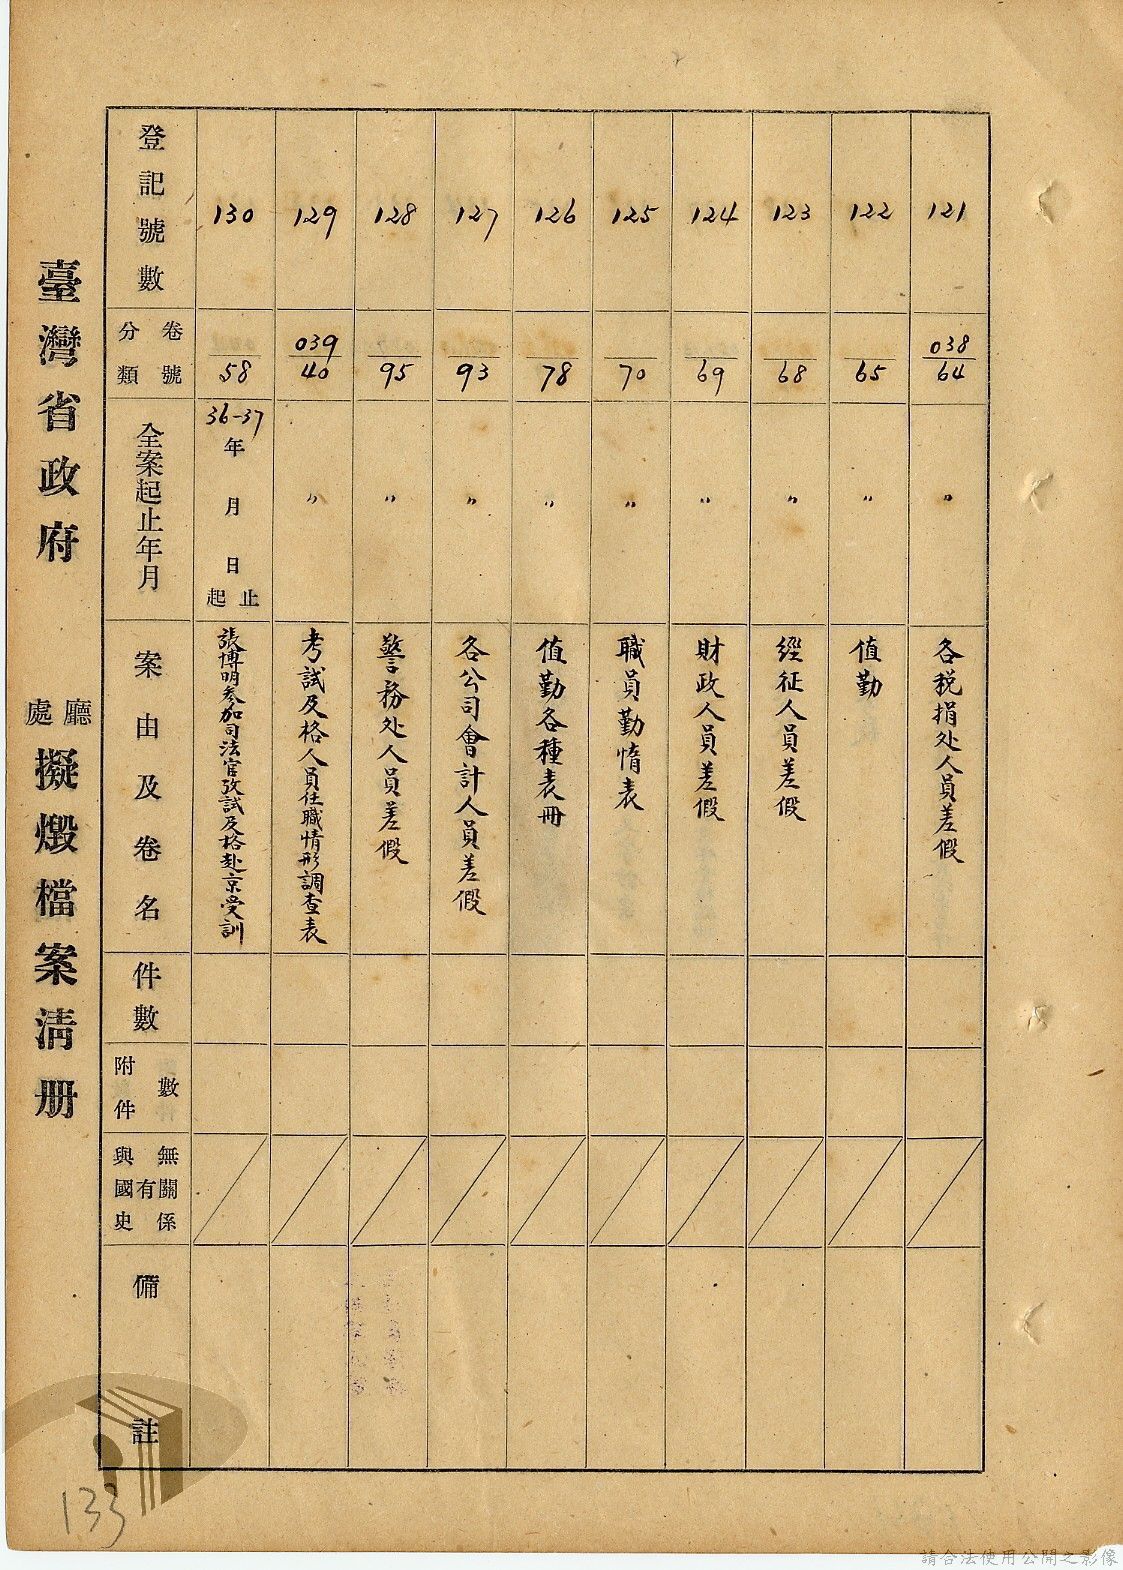 臺灣省政府 廳處 擬燬檔案清册
登記號數
分類 卷號
全案起止年月
案由及卷名
件數
附件 數
與國史 有無關係
備註
130
58
36-37 年 月 日 起止
張博明參加司法官攷試及格赴京受訓
129
039
40
〃
考試及格人員任職情形調查表
128
95
〃
警務处人員差假
127
93
〃
各公司會計人員差假
126
78
〃
值勤各種表冊
125
70
〃
職員勤惰表
124
69
〃
財政人員差假
123
68
〃
經征人員差假
122
65
〃
值勤
121
038
64
〃
各税捐处人員差假
133
請合法使用公開之影像